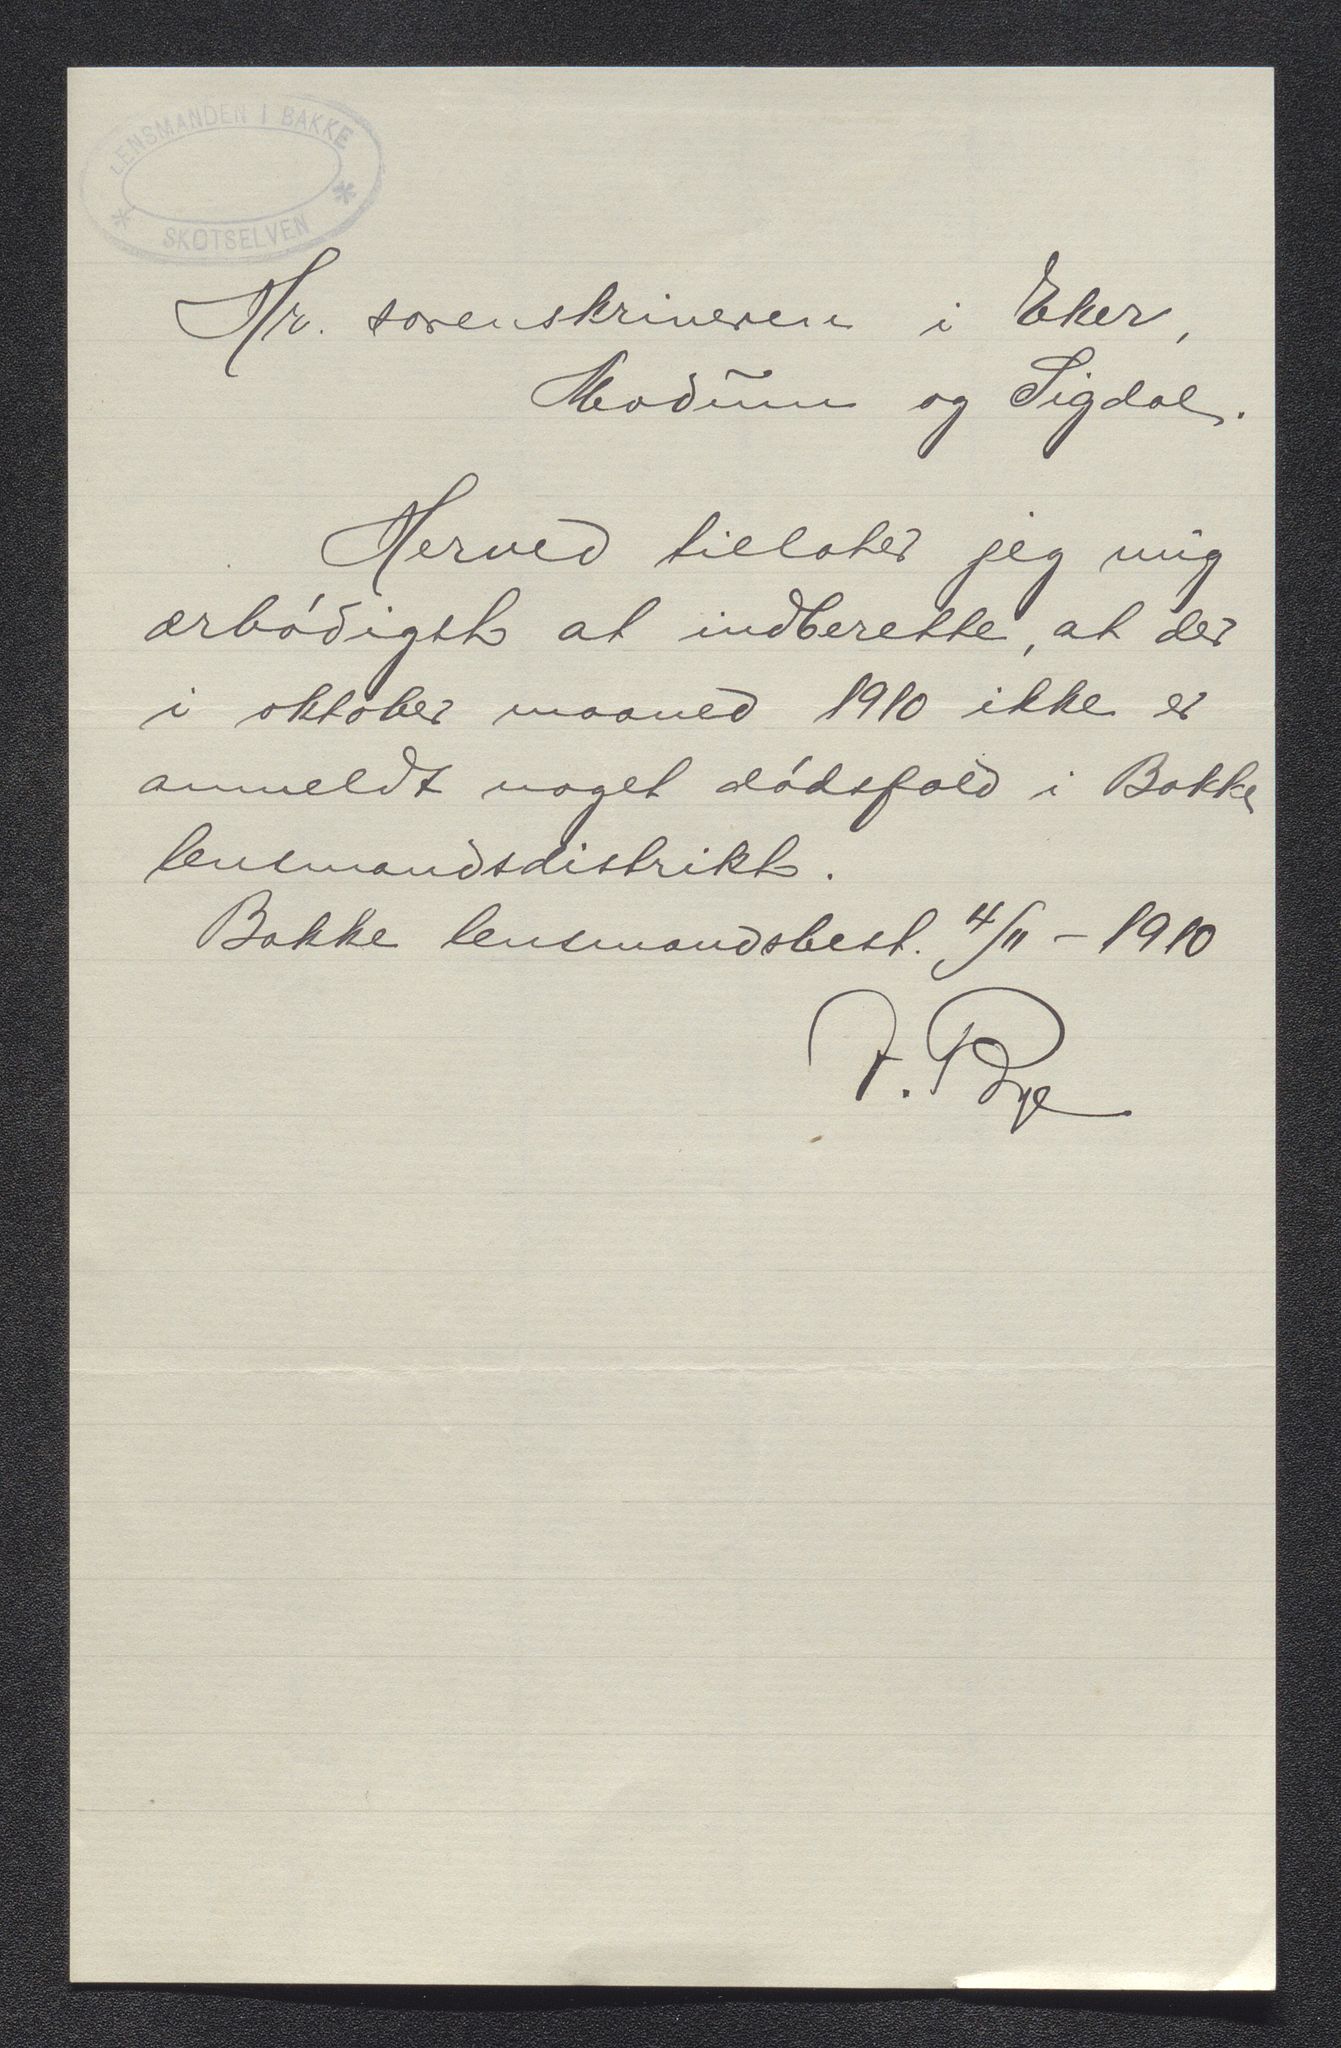 LENSMANDEN I BAKKE
* SKOTSELVEN *
Hr. sorenskriveren i Eker,
Modum og Sigdal.
Herved tillater jeg mig
ærbódigst at indberette, at der
i oktober maaned 1910 ikke er
anmeldt noget dódsfald i Bakke
lensmandsdistrikt.
Bakke lensmandsbest. 4/11 - 1910
J. Bye